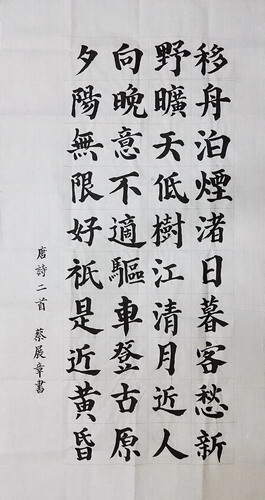 移舟泊煙渚日暮客愁新
野曠天低樹江清月近人
向晚意不適驅車登古原
夕陽無限好祇是近黃昏
唐詩二首 蔡展章書